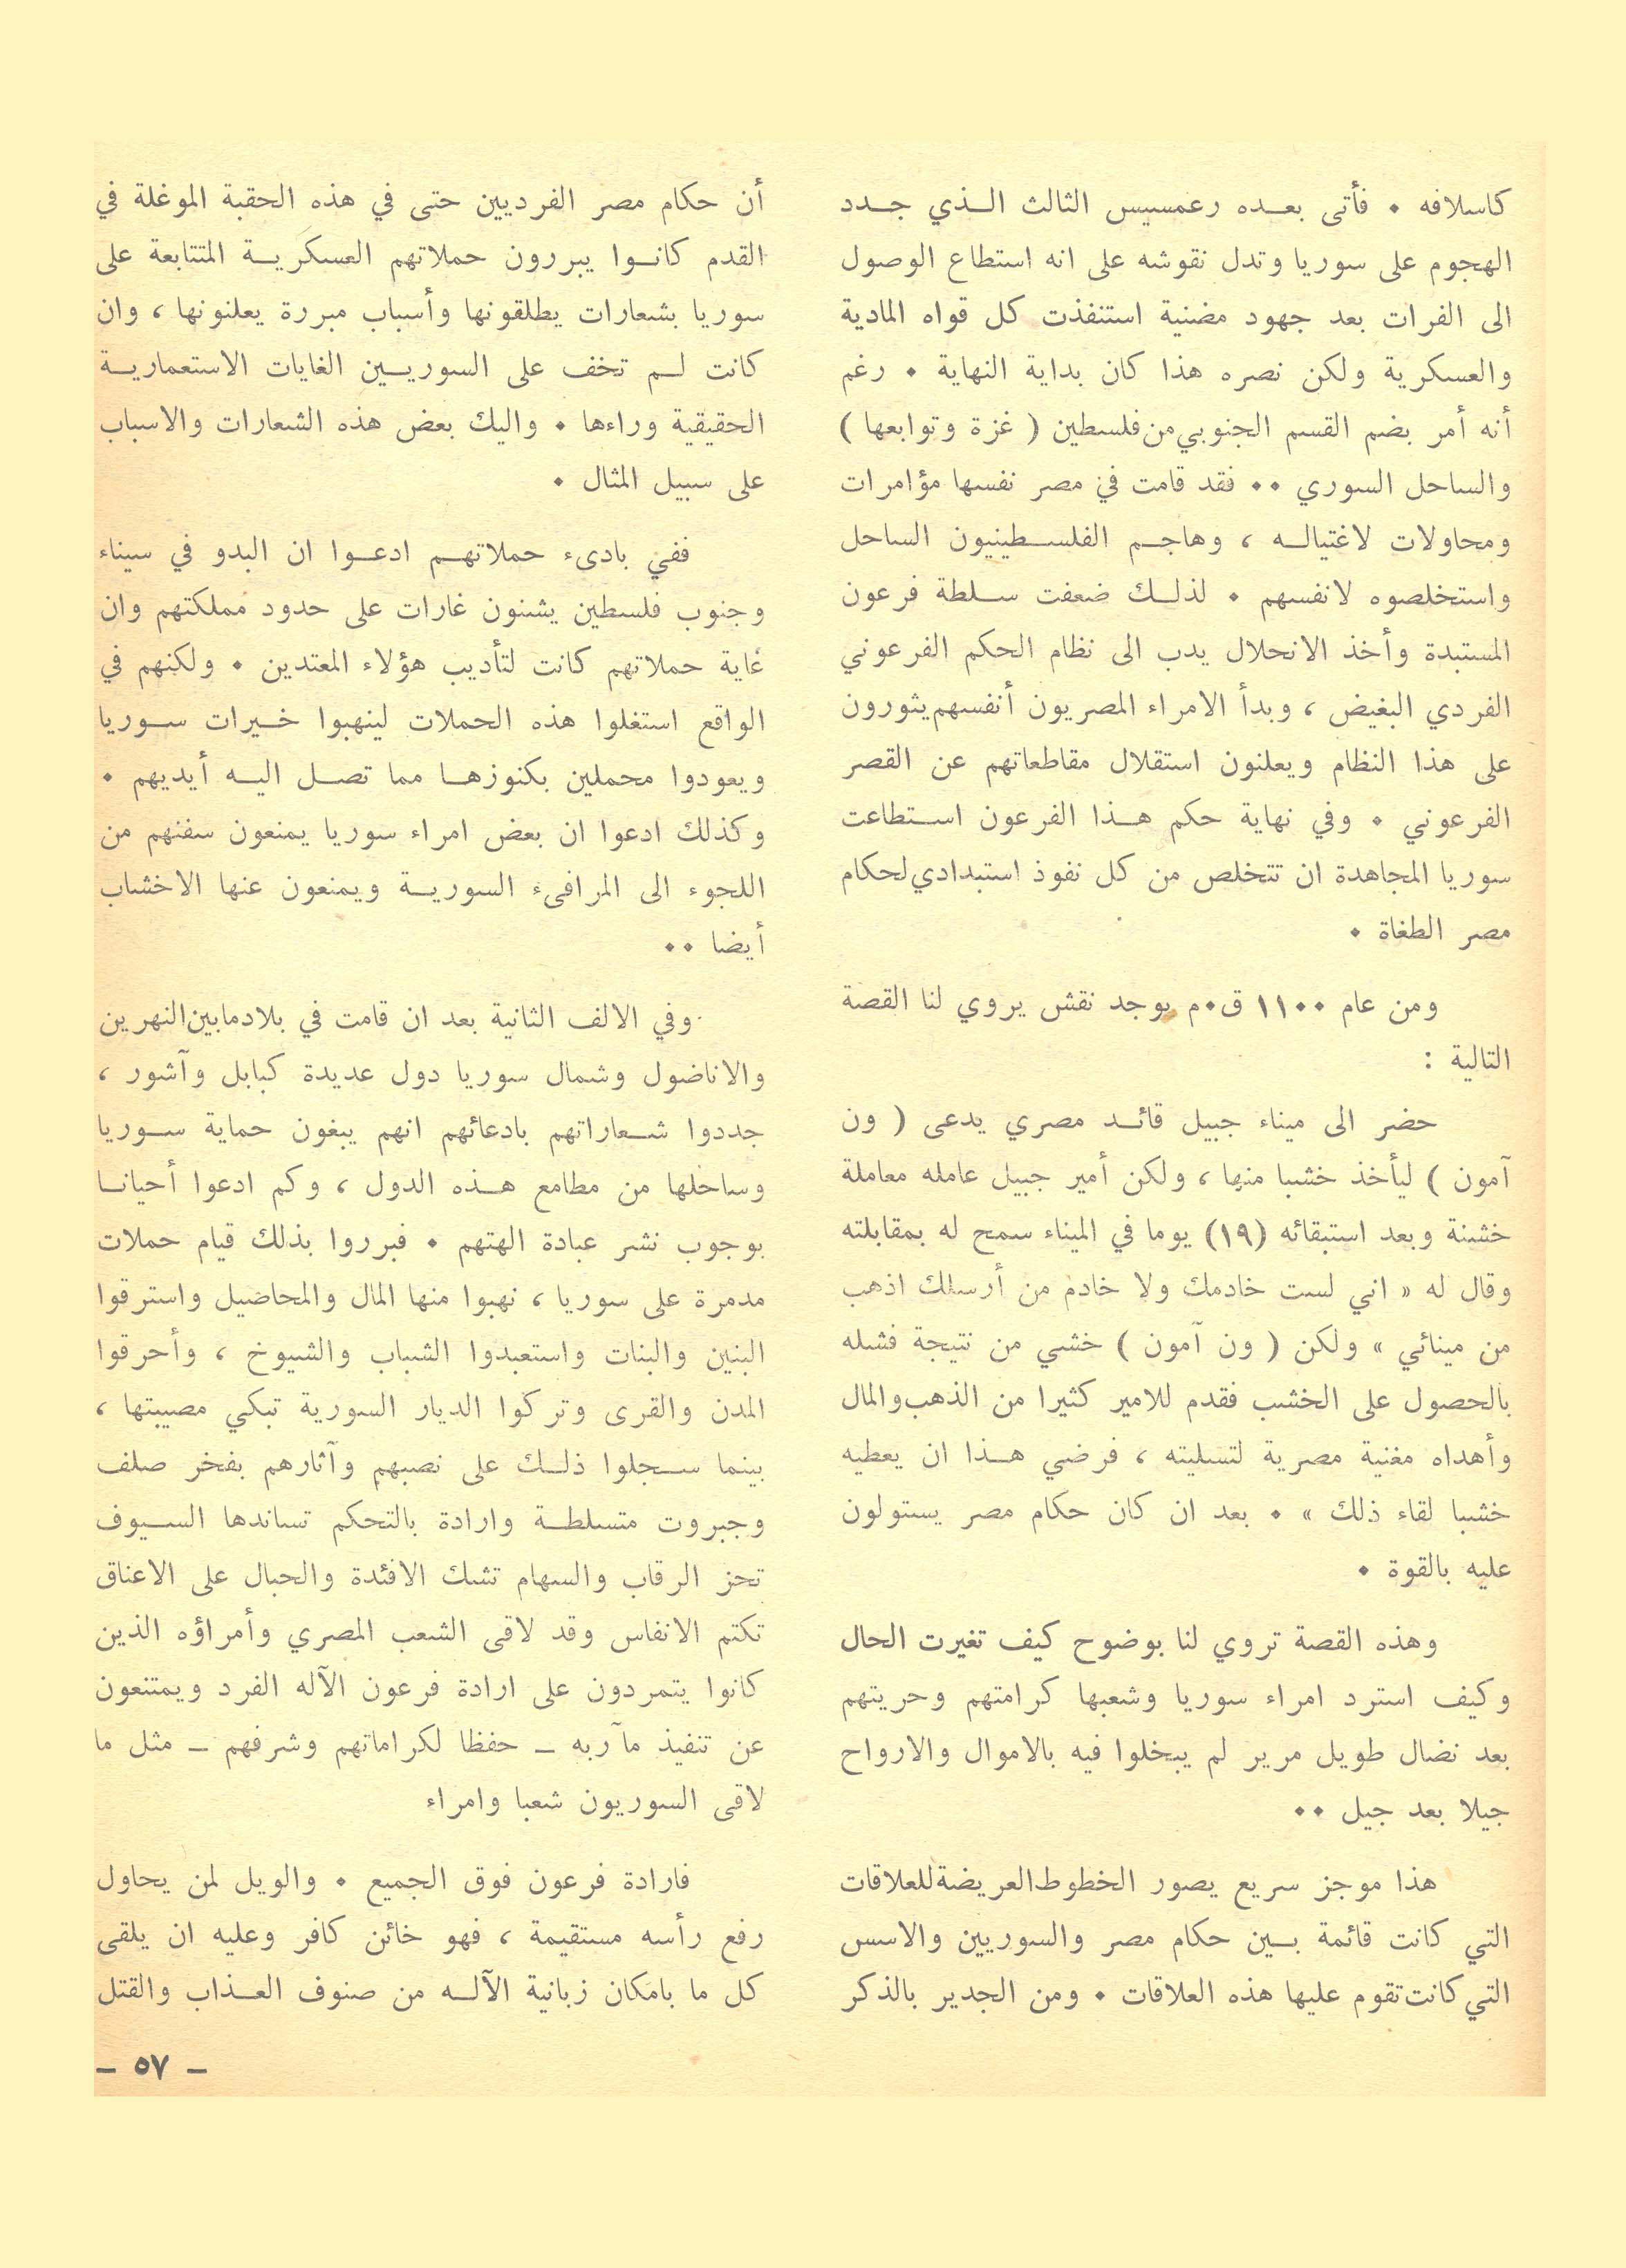 كاسلافه ٠ فأتى بعده رعمسيس الثالث الذي جدد
الهجوم على سوريا وتدل نقوشه على انه استطاع الوصول
الى الفرات بعد جهود مضنية استنفذت كل قواه المادية
والعسكرية ولكن نصره هذا كان بداية النهاية ٠ رغم
أنه أمر بضم القسم الجنوبي من فلسطين ( غزة وتوابعها )
والساحل السوري ٠٠ فقد قامت في مصر نفسها مؤامرات
ومحاولات لاغتياله ، وهاجم الفلسطينيون الساحل
واستخلصوه لانفسهم ٠ لذلك ضعفت سلطة فرعون
المستبدة وأخذ الانحلال يدب الى نظام الحكم الفرعوني
الفردي البغيض ، وبدأ الامراء المصريون أنفسهم يثورون
على هذا النظام ويعلنون استقلال مقاطعاتهم عن القصر
الفرعوني ٠ وفي نهاية حكم هذا الفرعون استطاعت
سوريا المجاهدة ان تتخلص من كل نفوذ استبدادي لحكام
مصر الطغاة ٠
ومن عام ١١٠٠ ق٠م يوجد نقش يروي لنا القصة
التالية :
حضر الى ميناء جبيل قائد مصري يدعى ( ون
آمون ) ليأخذ خشبا منها ، ولكن أمير جبيل عامله معاملة
خشنة وبعد استبقائه (١٩) يوما في الميناء سمح له بمقابلته
وقال له « اني لست خادمك ولا خادم من أرسلك اذهب
من مينائي » ولكن ( ون آمون ) خشي من نتيجة فشله
بالحصول على الخشب فقدم للامير كثيرا من الذهب والمال
وأهداه مغنية مصرية لتسليته ، فرضي هذا ان يعطيه
خشبا لقاء ذلك » ٠ بعد ان كان حكام مصر يستولون
عليه بالقوة ٠
وهذه القصة تروي لنا بوضوح كيف تغيرت الحال
وكيف استرد امراء سوريا وشعبها كرامتهم وحريتهم
بعد نضال طويل مرير لم يبخلوا فيه بالاموال والارواح
جيلا بعد جيل ٠٠
هذا موجز سريع يصور الخطوط العريضة للعلاقات
التي كانت قائمة بين حكام مصر والسوريين والاسس
التي كانت تقوم عليها هذه العلاقات ٠ ومن الجدير بالذكر
أن حكام مصر الفرديين حتى في هذه الحقبة الموغلة في
القدم كانوا يبررون حملاتهم العسكرية المتتابعة على
سوريا بشعارات يطلقونها وأسباب مبررة يعلنونها ، وان
كانت لم تخف على السوريين الغايات الاستعمارية
الحقيقية وراءها ٠ واليك بعض هذه الشعارات والاسباب
على سبيل المثال ٠
ففي بادىء حملاتهم ادعوا ان البدو في سيناء
وجنوب فلسطين يشنون غارات على حدود مملكتهم وان
غاية حملاتهم كانت لتأديب هؤلاء المعتدين ٠ ولكنهم في
الواقع استغلوا هذه الحملات لينهبوا خيرات سوريا
ويعودوا محملين بكنوزها مما تصل اليه أيديهم ٠
وكذلك ادعوا ان بعض امراء سوريا يمنعون سفنهم من
اللجوء الى المرافىء السورية ويمنعون عنها الاخشاب
أيضا ٠٠
وفي الالف الثانية بعد ان قامت في بلاد مابين النهرين
والاناضول وشمال سوريا دول عديدة كبابل وآشور ،
جددوا شعاراتهم بادعائهم انهم يبغون حماية سوريا
وساحلها من مطامع هذه الدول ، وكم ادعوا أحيانا
بوجوب نشر عبادة الهتهم ٠ فبرروا بذلك قيام حملات
مدمرة على سوريا ، نهبوا منها المال والمحاضيل واسترقوا
البنين والبنات واستعبدوا الشباب والشيوخ ، وأحرقوا
المدن والقرى وتركوا الديار السورية تبكي مصيبتها ،
بينما سجلوا ذلك على نصبهم وآثارهم بفخر صلف
وجبروت متسلطة وارادة بالتحكم تساندها السيوف
تحز الرقاب والسهام تشك الافئدة والحبال على الاعناق
تكتم الانفاس وقد لاقى الشعب المصري وأمراؤه الذين
كانوا يتمردون على ارادة فرعون الآله الفرد ويمتنعون
عن تنفيذ مآربه – حفظا لكراماتهم وشرفهم – مثل ما
لاقى السوريون شعبا وامراء
فارادة فرعون فوق الجميع ٠ والويل لمن يحاول
رفع رأسه مستقيمة ، فهو خائن كافر وعليه ان يلقى
كل ما بامكان زبانية الآله من صنوف العذاب والقتل
– ٥٧ –